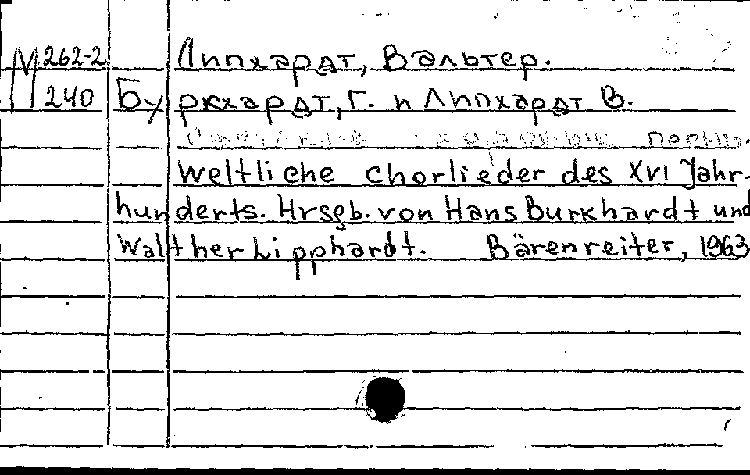 М 262-2 Липхардт, Вальтер.
240 Буркхардт, Г. и Липхардт В.
хоровые песни.
Weltliche Chorlieder des XVI Jahr-
hunderts. Hrsgb. von Hans Burkhardt und
Walther Lipphardt. Bärenreiter, 1963